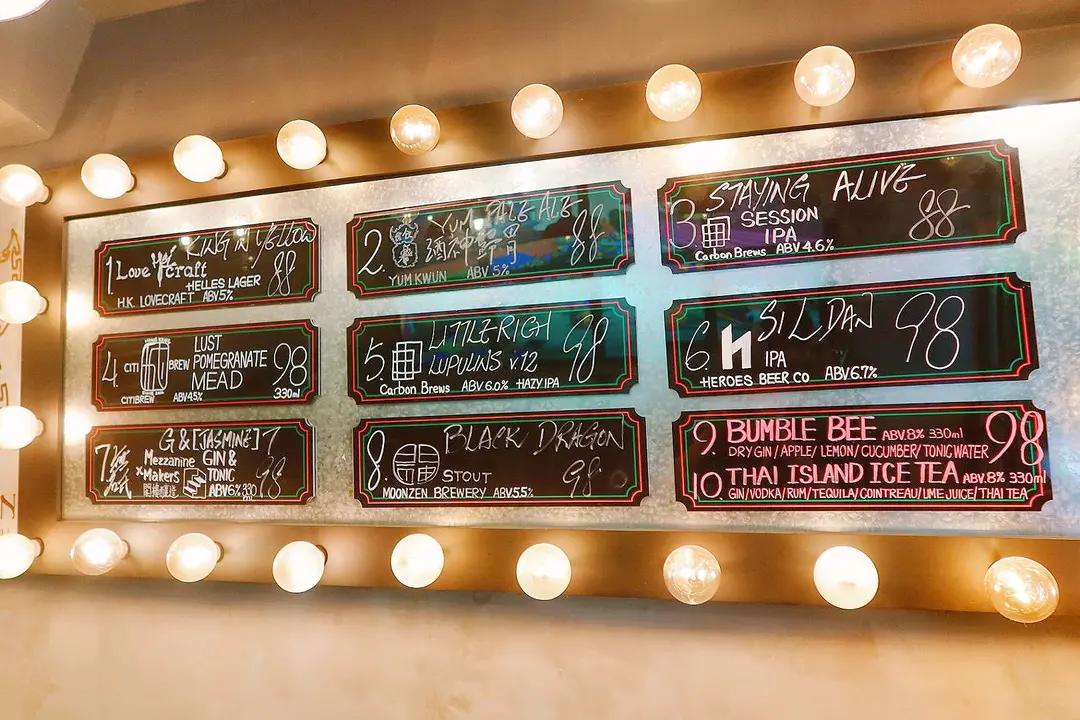 KING IN YELLOW
1 Love craft 88
HELLES LAGER
H.K. LOVECRAFT ABV 5%
2. YUM PALE ALE 88
酒神
YUM KWUN ABV 5%
3 STAYING ALIVE 88
SESSION
IPA
Carbon Brews ABV 4.6%
4. CITI BREW LUST
POMEGRANATE 98
MEAD
CITIBREW ABV 4.5% 330ml
5. LITTLE RICH 98
LUPULINS V.12
Carbon Brews ABV 6.0% HAZY IPA
6. H SIL DAN 98
IPA
HEROES BEER CO ABV 6.7%
7 G & [JASMINE] 7
Mezzanine GIN &
× Makers TONIC 98
ABV 6% 330
ml
8. BLACK DRAGON
STOUT 98
MOONZEN BREWERY ABV 5.5%
9. BUMBLE BEE ABV. 8% 330ml 98
DRY GIN / APPLE / LEMON / CUCUMBER / TONIC WATER
10 THAI ISLAND ICE TEA ABV. 8% 330ml
GIN/VODKA/RUM/TEQUILA/COINTREAU/LIME JUICE/THAI TEA